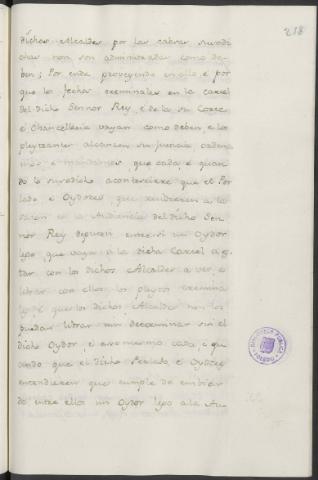 218
dichos Alcaldes por las cabsas susodi
chas non son administradas como de-
ben; Por ende proveyendo en ello, e por
que los fechos creminales en la carcel
del dicho Sennor Rey, e de la su Corte
e Chancelleria vayan como deben, e los
pleyteantes alcancen su justicia ordena
mos e mandamos, que cada e quan
do lo susodicho acontesciere que el Per
lado e Oydores que residieren a la
sazon en la Audiencia del dicho Sen
nor Rey deputen entre si un Oydor
lego que vaya a la dicha Carcel a es
tar con los dichos Alcaldes a ver, e
librar con ellos los pleytos crimina
les, e que los dichos Alcaldes non los
puedan librar nin determinar sin el
dicho Oydor, e asi mismo cada, e qu
ando que el dicho Perlado, e Oydores
entendieren que cumple de embiar
do entre ellos un Oydor lego a la Au-
BIBLIOTECA PUBLICA
TOLEDO